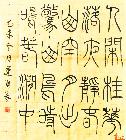 人閒桂華
落夜靜春
山空月出
驚山鳥時
鳴春澗中
乙未冬月